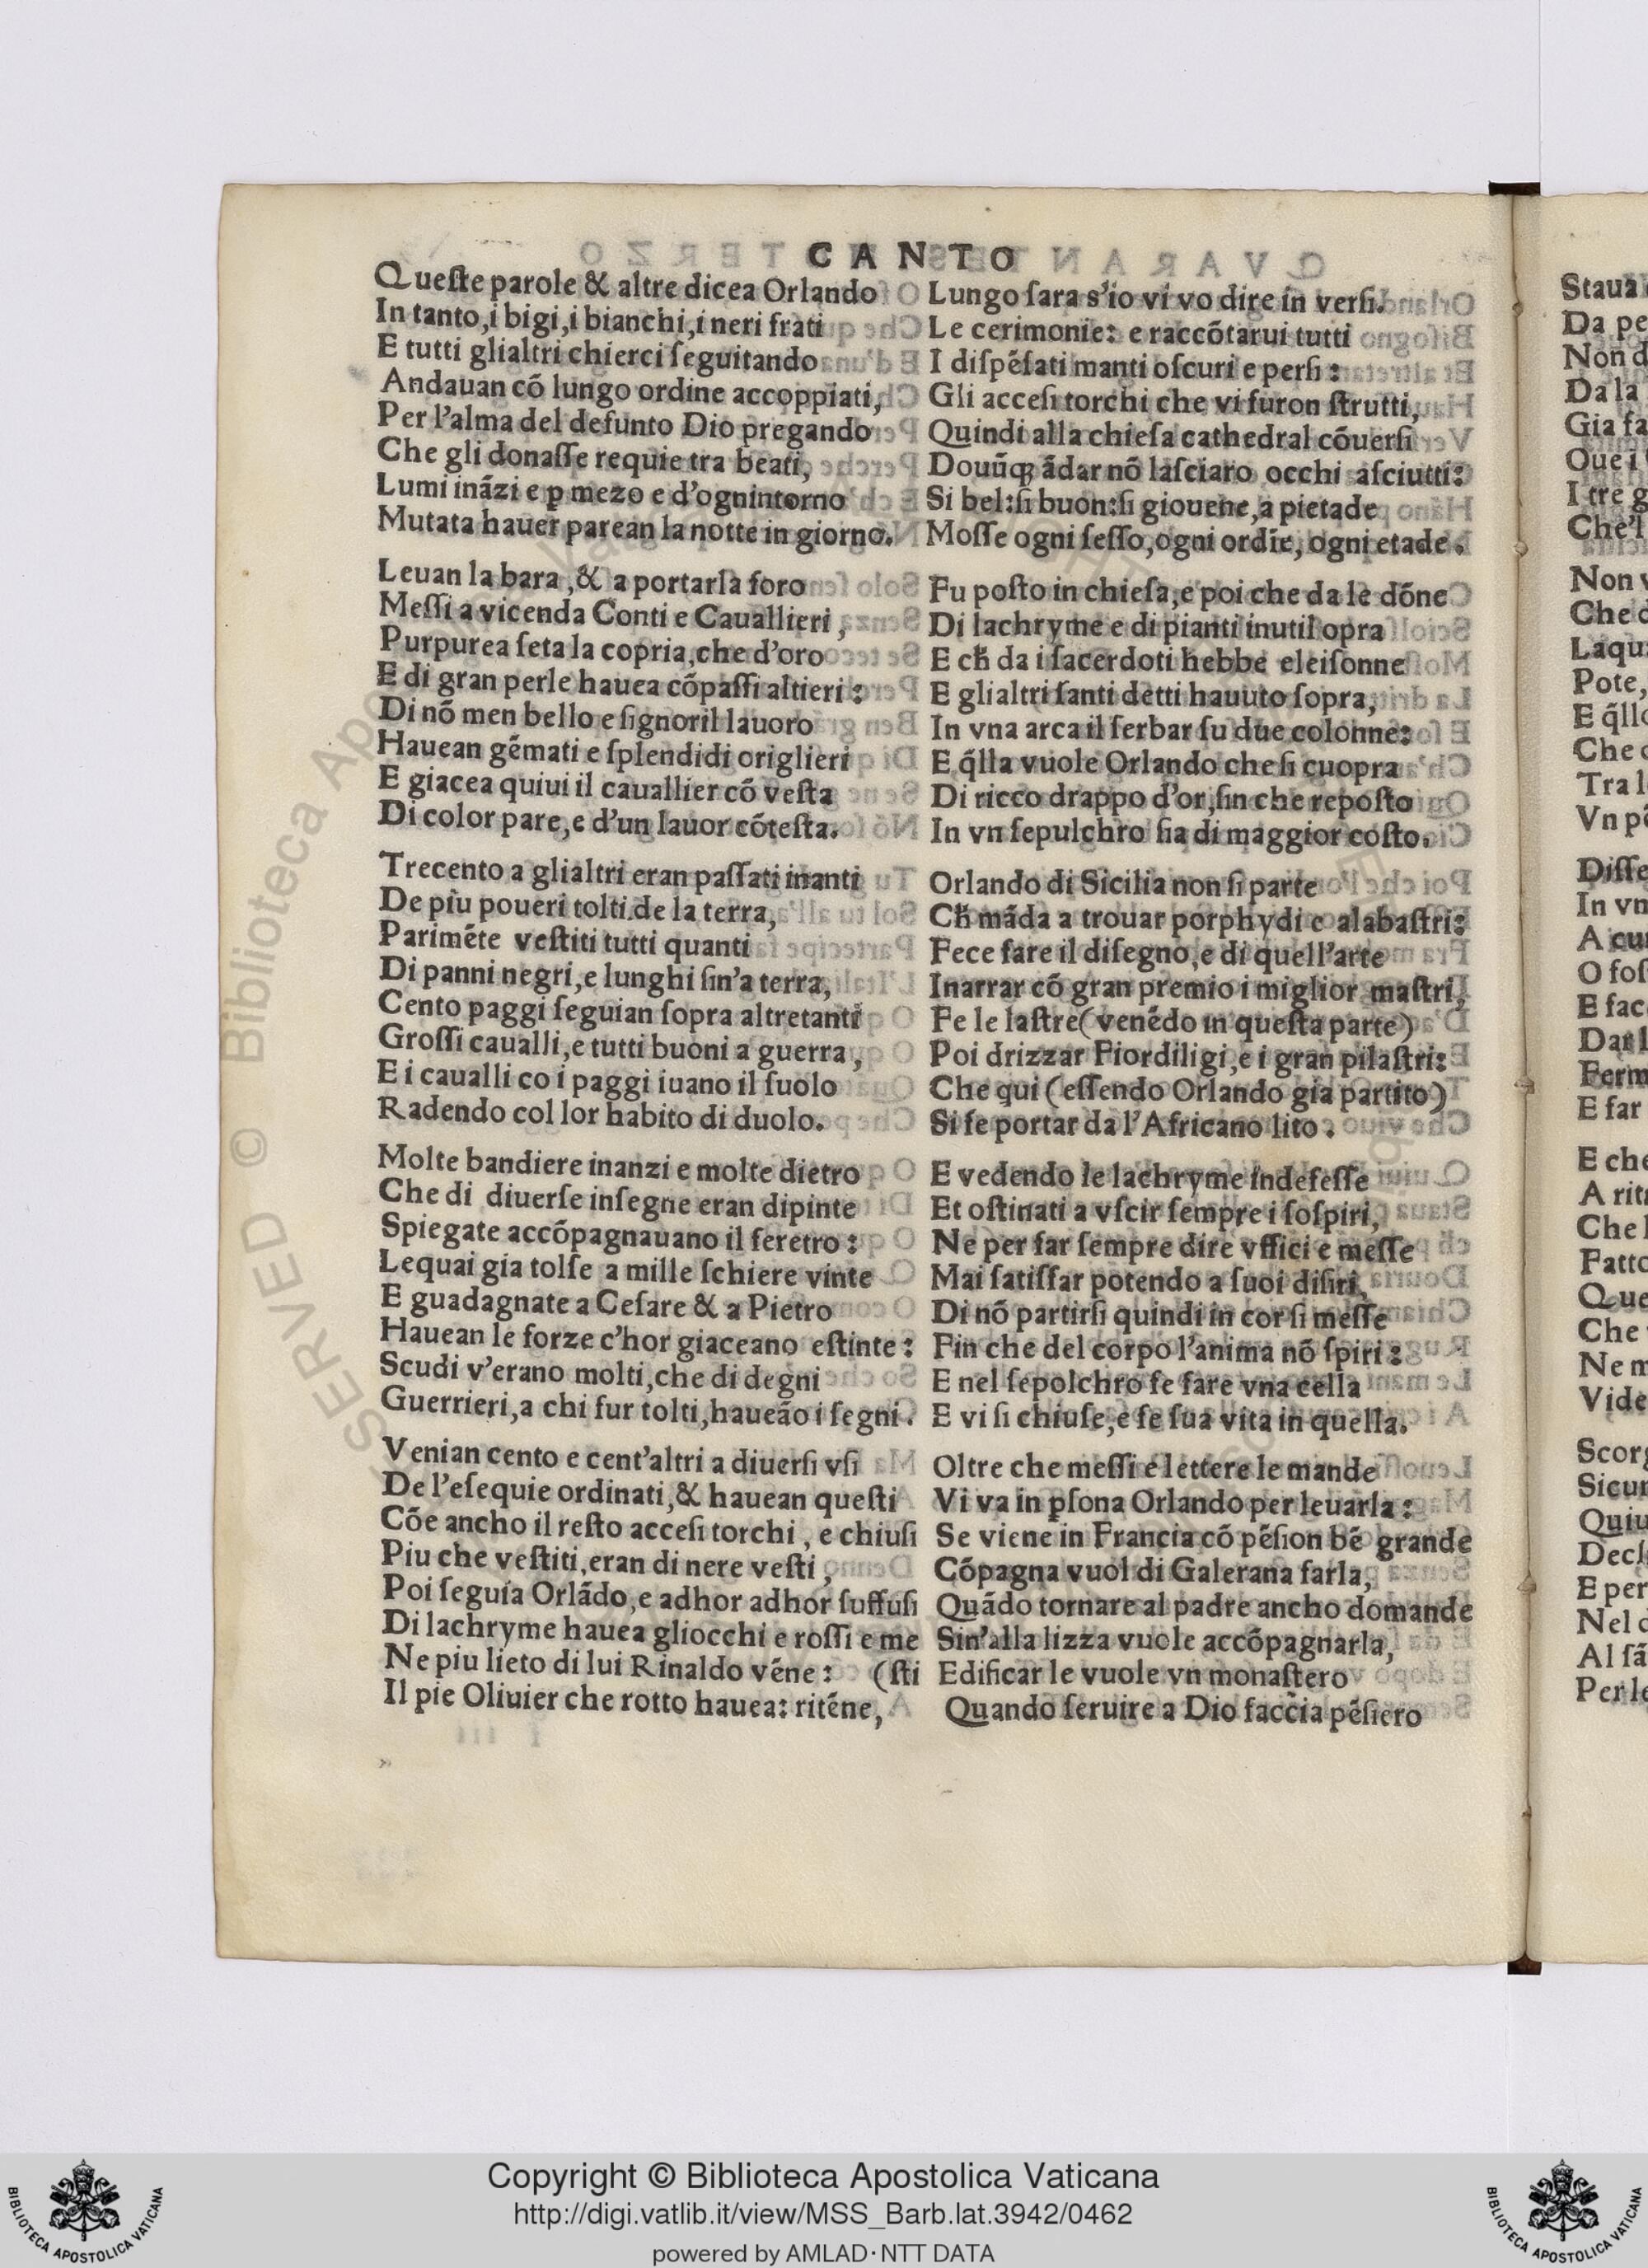 CANTO
Queſte parole & altre dicea Orlando
In tanto,i bigi,i bianchi,i neri frati
E tutti glialtri chierci ſeguitando
Andauan cõ lungo ordine accoppiati,
Per l'alma del defunto Dio pregando
Che gli donaſſe requie tra beati,
Lumi inãzi e ꝑ mezo e d'ognintorno
Mutata hauer parean la notte in giorno.
Leuan la bara,& a portarla foro
Meſſi a vicenda Conti e Cauallieri,
Purpurea ſeta la copria,che d'oro
E di gran perle hauea cõpaſſi altieri:
Di nõ men bello e ſignoril lauoro
Hauean gẽmati e ſplendidi origlieri
E giacea quiui il cauallier cõ veſta
Di color pare,e d'un lauor cõteſta.
Trecento a glialtri eran paſſati inanti
De piu poueri tolti de la terra,
Parimẽte veſtiti tutti quanti
Di panni negri,e lunghi ſin'a terra,
Cento paggi ſeguian ſopra altretanti
Groſſi caualli,e tutti buoni a guerra,
E i caualli co i paggi iuano il ſuolo
Radendo col lor habito di duolo.
Molte bandiere inanzi e molte dietro
Che di diuerſe inſegne eran dipinte
Spiegate accõpagnauano il feretro:
Lequai gia tolſe a mille ſchiere vinte
E guadagnate a Ceſare & a Pietro
Hauean le forze c'hor giaceano eſtinte:
Scudi v'erano molti,che di degni
Guerrieri,a chi fur tolti,haueão i ſegni.
Venian cento e cent'altri a diuerſi vſi
De l'eſequie ordinati,& hauean queſti
Cõe ancho il reſto acceſi torchi, e chiuſi
Piu che veſtiti,eran di nere veſti,
Poi ſeguia Orlãdo,e adhor adhor ſuffuſi
Di lachryme hauea gliocchi e roſſi e me
Ne piu lieto di lui Rinaldo vẽne: (ſti
Il pie Oliuier che rotto hauea: ritẽne,
Lungo ſara s'io vi vo dire in verſi.
Le cerimonie: e raccõtarui tutti
I diſpẽſati manti oſcuri e perſi:
Gli acceſi torchi che vi furon ſtrutti,
Quindi alla chieſa cathedral cõuerſi
Douũqꝫ ãdar nõ laſciaro occhi aſciutti:
Si bel:ſi buon:ſi giouene,a pietade
Moſſe ogni ſeſſo,ogni ordĩe, ogni etade.
Fu poſto in chieſa,e poi che da le dõne
Di lachryme e di pianti inutil opra
E cħ da i ſacerdoti hebbe eleiſonne
E glialtri ſanti detti hauuto ſopra,
In vna arca il ſerbar ſu due colonne:
E q̃lla vuole Orlando che ſi cuopra
Di ricco drappo d'or,ſin che repoſto
In vn ſepulchro ſia di maggior coſto.
Orlando di Sicilia non ſi parte
Cħ mãda a trouar porphydi e alabaſtri:
Fece fare il diſegno,e di quell'arte
Inarrar cõ gran premio i miglior maſtri,
Fe le laſtre(venẽdo in queſta parte)
Poi drizzar Fiordiligi,e i gran pilaſtri:
Che qui (eſſendo Orlando gia partito)
Si fe portar da l'Africano lito.
E vedendo le lachryme indefeſſe
Et oſtinati a vſcir ſempre i ſoſpiri,
Ne per far ſempre dire vffici e meſſe
Mai ſatiſfar potendo a ſuoi diſiri,
Di nõ partirſi quindi in cor ſi meſſe
Fin che del corpo l'anima nõ ſpiri:
E nel ſepolchro fe fare vna cella
E vi ſi chiuſe,e fe ſua vita in quella.
Oltre che meſſi e lettere le mande
Vi va in ꝑſona Orlando per leuarla:
Se viene in Francia cõ pẽſion bẽ grande
Cõpagna vuol di Galerana farla,
Quãdo tornare al padre ancho domande
Sin'alla lizza vuole accõpagnarla,
Edificar le vuole vn monaſtero
Quando ſeruire a Dio faccia pẽſiero
Staua
Da pe
Non d
Da la
Gia fa
Oue i
I tre g
Che'l
Non v
Che d
Laqu
Pote,
E q̃ll
Che c
Tra l
Vn p
Diſſe
In vn
A cu
O foſ
E fac
Dar l
Ferm
E far
E che
A rit
Che l
Fatto
Que
Che
Ne m
Vide
Scorg
Sicur
Quiu
Decl
E per
Nel c
Al ſã
Per le
© Biblioteca Apo
Copyright © Biblioteca Apostolica Vaticana
http://digi.vatlib.it/view/MSS_Barb.lat.3942/0462
powered by AMLAD·NTT DATA
BIBLIOTECA APOSTOLICA VATICANA
BIBLIOTECA APOSTOLICA VATICANA